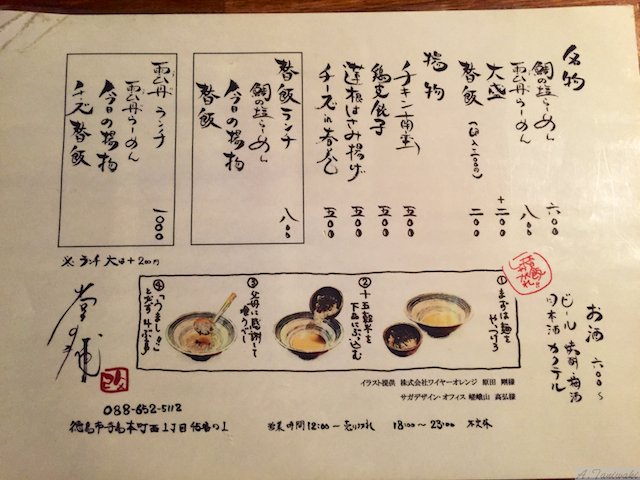 名物
鯛の塩らーめん 六〇〇
雲丹らーめん 八〇〇
大盛 +二〇〇
替飯 二〇〇
揚物
チキン南蛮 五〇〇
鶏皮餃子 五〇〇
蓮根はさみ揚げ 五〇〇
チーズin春巻 五〇〇
替飯ランチ 八〇〇
鯛の塩らーめん
今日の揚物
替飯
雲丹ランチ 一〇〇〇
雲丹らーめん
今日の揚物
チーズ替飯
※ランチ大は+200円
お酒 六〇〇s
ビール 焼酎 梅酒
日本酒 カクテル
①まずは麺を
やっつける
②十五穀米を
下品にぶっ込む
③父母に感謝して
喰うべし
④「うまし!!」
と
イラスト提供 株式会社ワイヤーオレンジ 原田 剛様
サガデザイン・オフィス 嵯峨山 高弘様
堂の浦
088-652-5112
徳島市寺島本町西1丁目
営業時間 12:00〜売り切れ 18:00〜23:00 不定休
A. Taniwaki